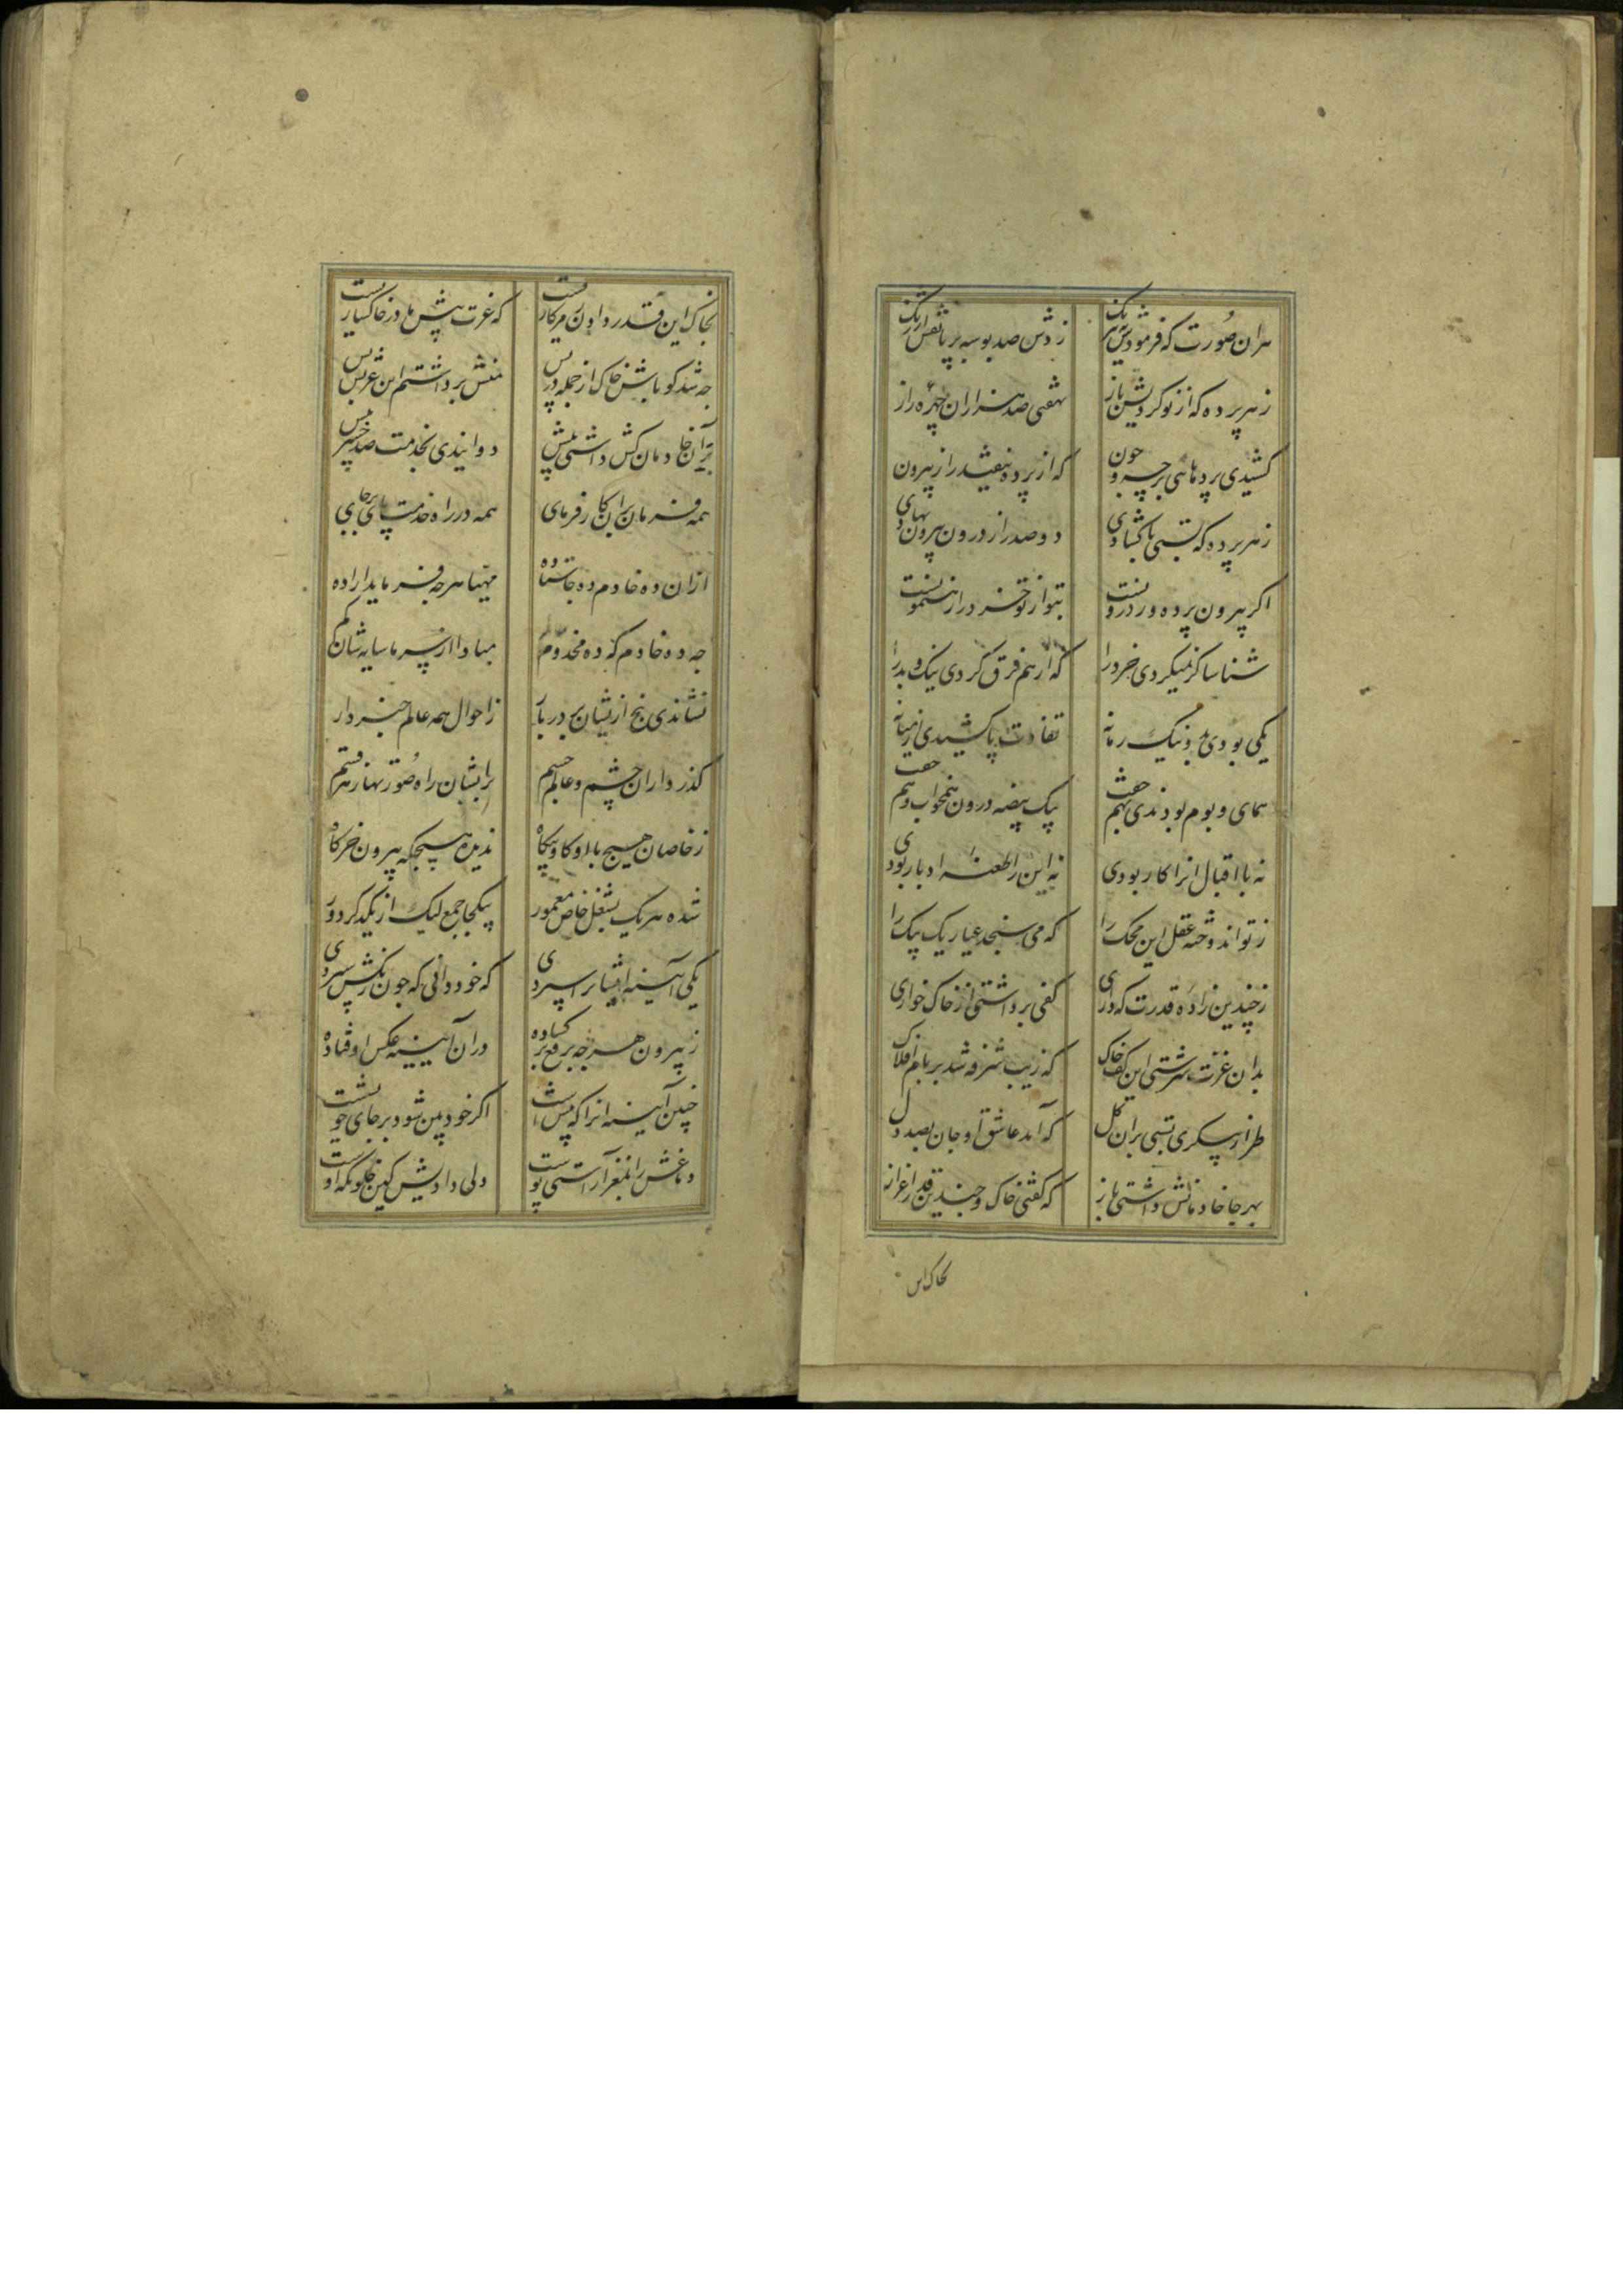 هران صورت که فرمودیش نیرنگ
زدش صد بوسه بر پا نقش ارژنگ
ز هر پرده که از نو کردیش باز
نهفتی صد هزاران چهره راز
کشیدی پردهایی بر چه و چون
که از پرده نیفتد راز بیرون
ز هر پرده که بستی یا گشادی
دو صد راز درون بیرون نهادی
اگر بیرون پرده ور درونست
بتو از تو خرد را رهنمونست
شناسا گر نمیکردی خرد را
که از هم فرق کردی نیک و بد را
یکی بودی بد و نیک زمانه
تفاوت پا کشیدی از میانه
همای و بوم بودندی بهم جفت
بیک بیضه درون همخواب و هم خفت
نه با اقبال انرا کار بودی
نه این را طعنه ادبار بودی
ز تو اندوخته عقل این محک را
که می سنجد عیار یک بیک را
ز چندین زاده قدرت که داری
کفی برداشتی از خاک خواری
بدان عزت سرشتی این کف خاک
که زیب شرفه شد بر بام افلاک
طراز پیکری بستی بران گل
که آمد عاشق او جان بصد دل
بهر جا خادمانش داشتی باز
که گفتی خاک و چندین قدر و اعزاز
بخاک این
بخاک این قدر دادن مر کار تست
که عزت پیش ما در خاکساریست
چه شد گو باش خاک از جمله در پس
منش برداشتم این عزتش بس
بر آن خادمان کش داشتی پیش
دوانیدی بخدمت صد خبر بیش
همه فرمان بران کار فرمای
همه در راه خدمت پای بر جای
ازان ده خادم ده جا ستاده
مهیا هر چه فرماید اراده
چه ده خادم که ده مخدوم عالم
مبادا از سر ما سایه شان کم
نشاندی پنج ازیشان بر در بار
ز احوال همه عالم خبردار
گذر داران چشم و عالم جسم
برایشان راه صورتها ز هر قسم
ز خاصان هیچ با او گاه و بیگاه
ندیده هیچگه بیرون خرگاه
شده هر یک بشغل خاص معمور
بیکجا جمع لیک از یکدگر دور
یکی آیینه ایشانرا سپردی
که خود دانی که چون رنگش ستردی
ز بیرون هر چه برقع بر گشاده
دران آیینه عکس او فتاده
چنین آیینه انرا که پیش است
اگر خود بین شود بر جای خویشست
دماغش را بمغز آراستی پوست
ولی دادیش کین خلوتگه اوست